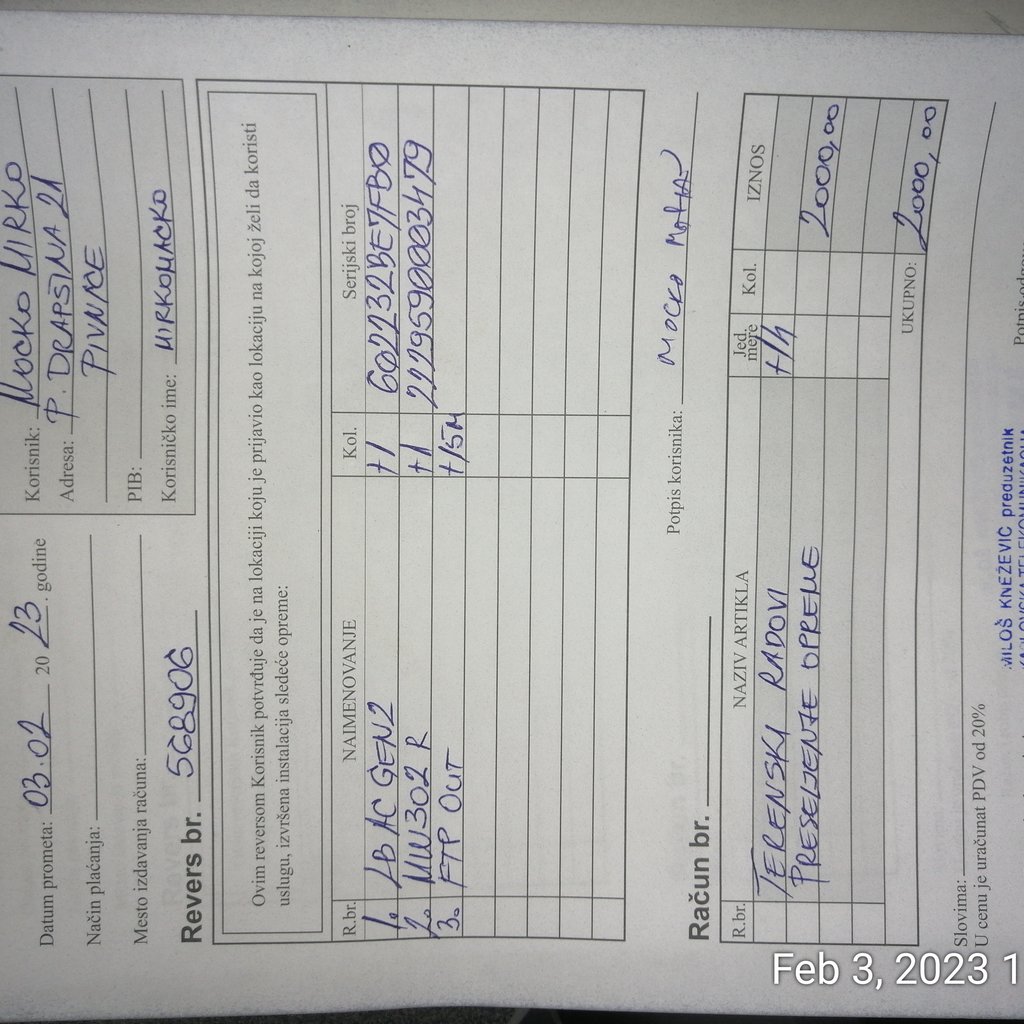 Datum prometa: 03.02 2023. godine
Način plaćanja:
Mesto izdavanja računa:
Korisnik: Мocko MIRKO
Adresa: P. DRAPŠINA 21
PIVNICE
PIB:
Korisničko ime: MIRKOMACKO
Revers br. 568906
Ovim reversom Korisnik potvrđuje da je na lokaciji koju je prijavio kao lokaciju na kojoj želi da koristi
uslugu, izvršena instalacija sledeće opreme:
R.br. NAIMENOVANJE Kol. Serijski broj
1. LB AC GEN2 +1 602232BE7FB0
2. MW302 R +1 2229590003479
3. FTP OUT +15M
Potpis korisnika: Моcко
Račun br.
R.br. NAZIV ARTIKLA Jed. mere Kol. IZNOS
TERENSKI RADOVI +1h
PRESELJENJE OPREME 2000,00
UKUPNO: 2000,00
Slovima:
U cenu je uračunat PDV od 20%
MILOŠ KNEŽEVIĆ preduzetnik
Feb 3, 2023 1